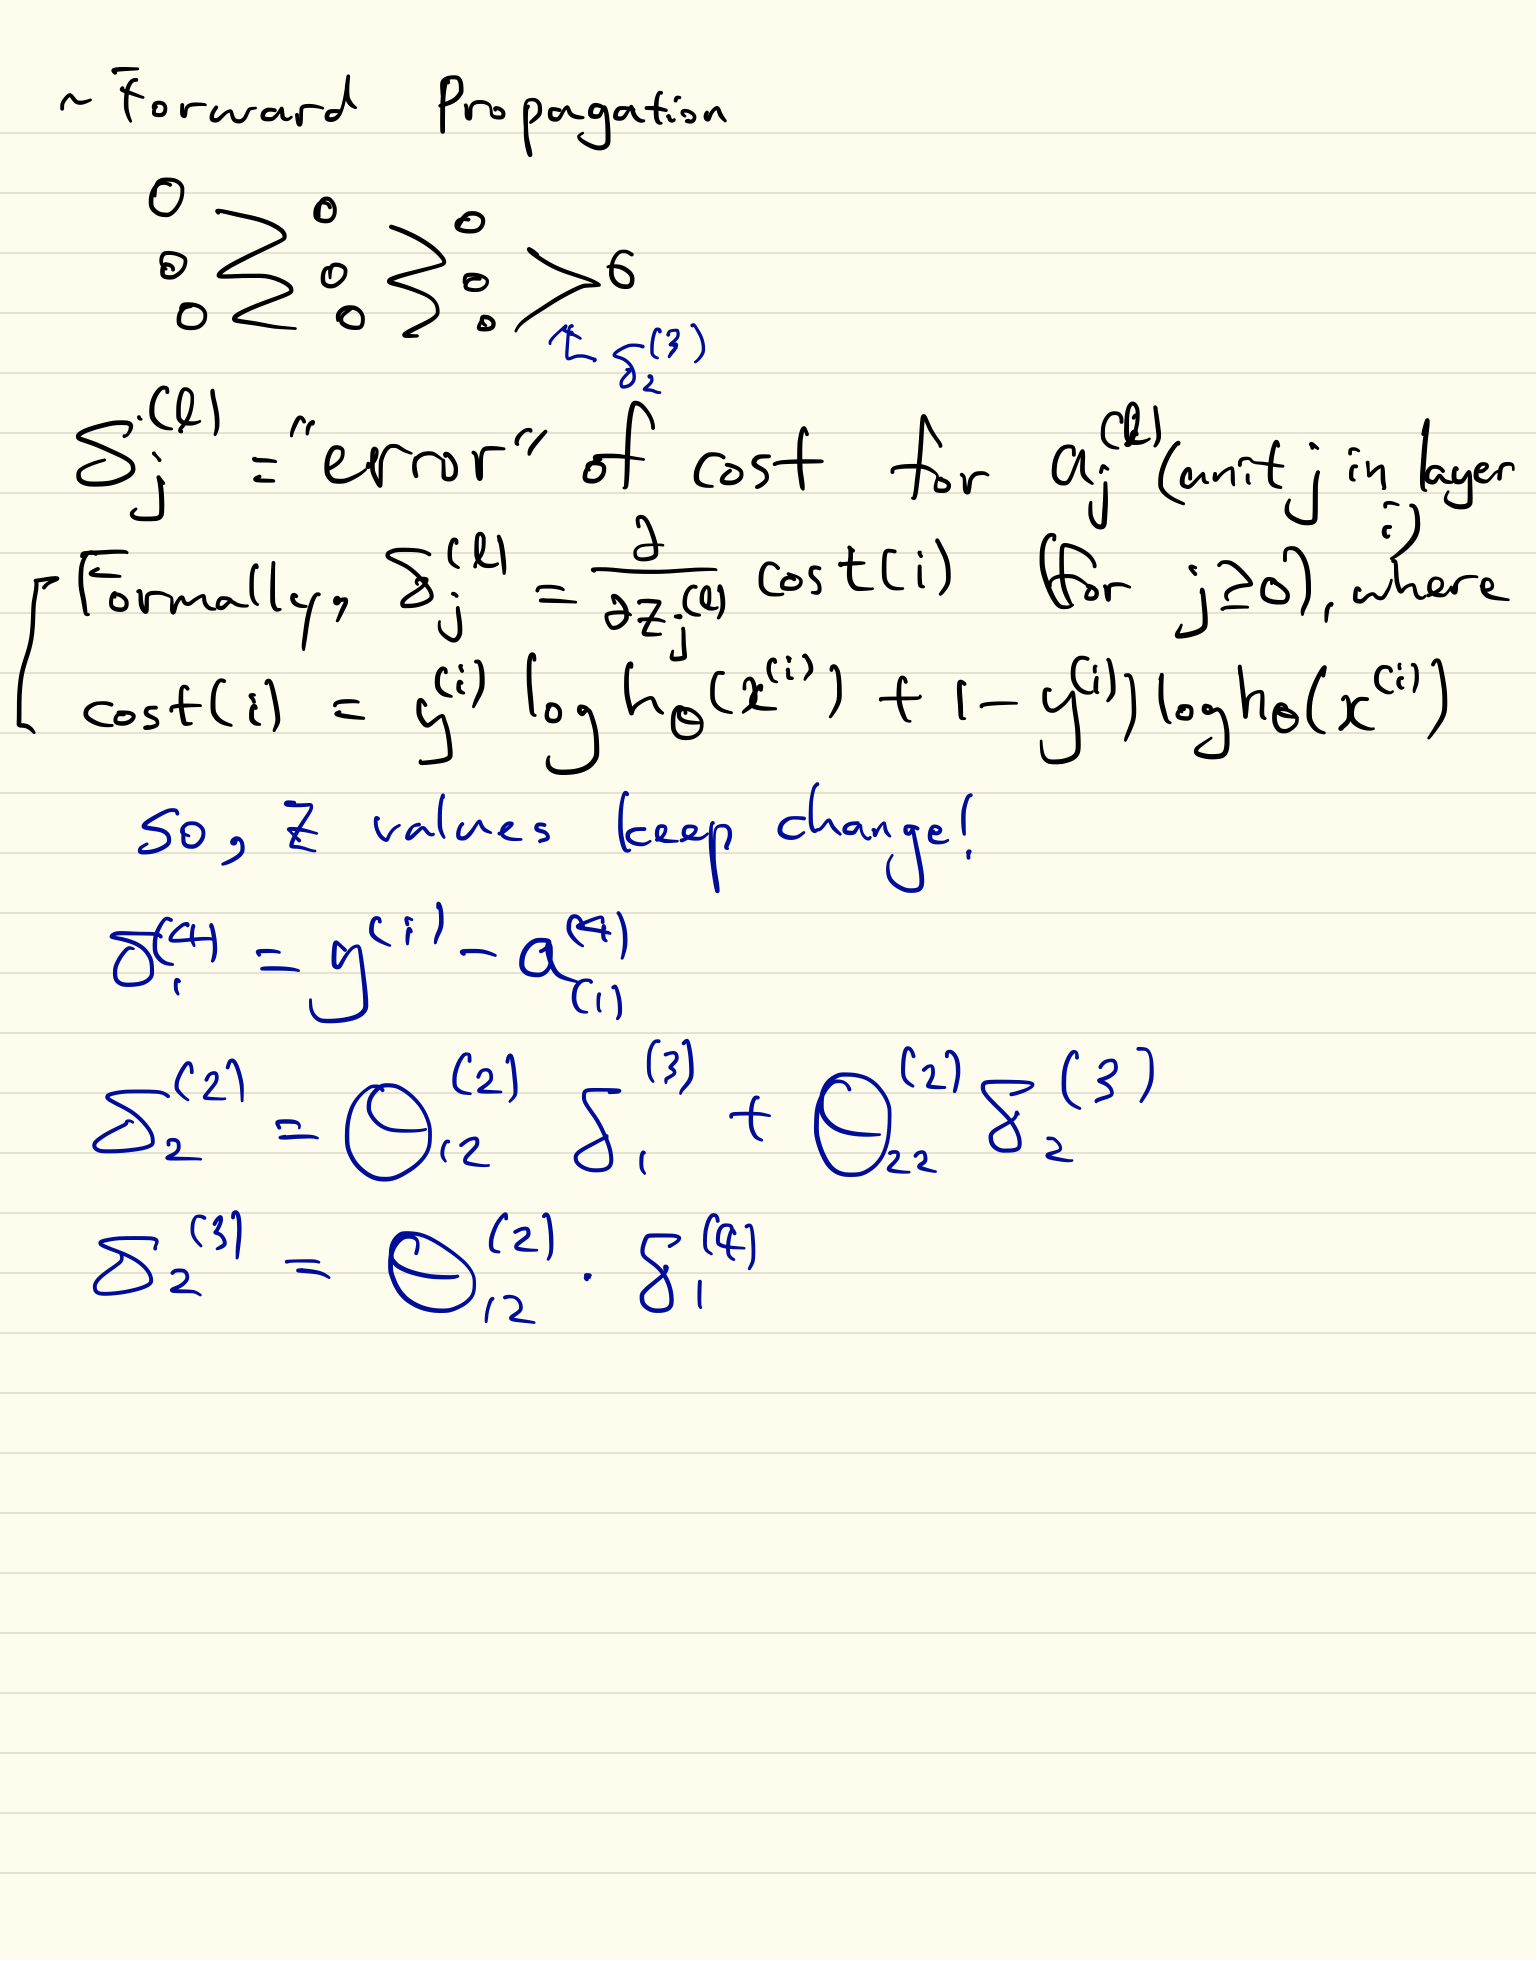 ~ Forward Propagation
δ₂⁽³⁾
δⱼ⁽ˡ⁾ = "error" of cost for aⱼ⁽ˡ⁾ (unit j in layer
i)
Formally, δⱼ⁽ˡ⁾ = ∂/∂zⱼ⁽ˡ⁾ cost(i) (for j≥0), where
cost(i) = y⁽ⁱ⁾ log h_θ(x⁽ⁱ⁾) + 1 - y⁽ⁱ⁾) log h_θ(x⁽ⁱ⁾)
so, z values keep change!
δ₁⁽⁴⁾ = y⁽ⁱ⁾ - a₍₁₎⁽⁴⁾
δ₂⁽²⁾ = Θ₁₂⁽²⁾ δ₁⁽³⁾ + Θ₂₂⁽²⁾ δ₂⁽³⁾
δ₂⁽³⁾ = Θ₁₂⁽²⁾ · δ₁⁽⁴⁾